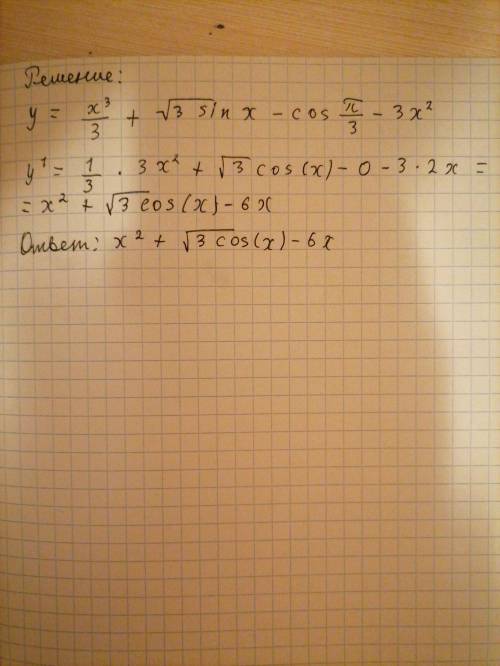 Решение:
y = x³/3 + √3 sin x - cos π/3 - 3x²
y' = 1/3 · 3x² + √3 cos(x) - 0 - 3 · 2x =
= x² + √3 cos(x) - 6x
Ответ: x² + √3 cos(x) - 6x